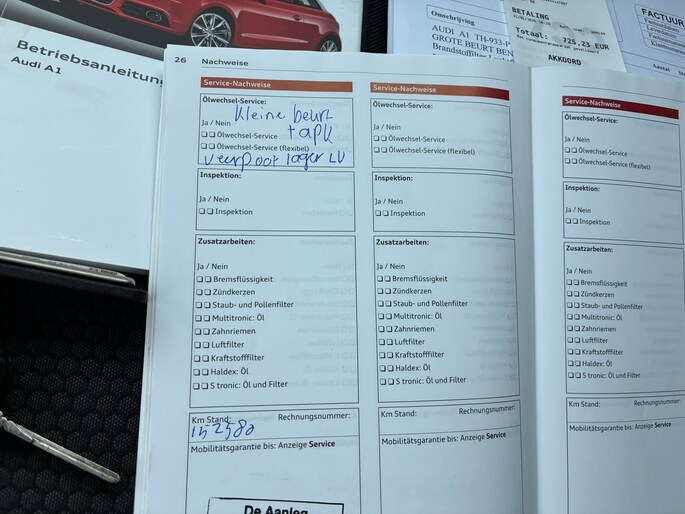 Betriebsanleitung
Audi A1
Omschrijving
AUDI A1 TH-933-P
GROTE BEURT BEN
BETALING
Totaal: 725,23 EUR
AKKOORD
FACTUUR
26 Nachweise
Service-Nachweise
Ölwechsel-Service:
Kleine beurt
Ja / Nein
+ apk
Ölwechsel-Service
Ölwechsel-Service (flexibel)
veerpoot lager LV
Inspektion:
Ja / Nein
Inspektion
Zusatzarbeiten:
Ja / Nein
Bremsflüssigkeit
Zündkerzen
Staub- und Pollenfilter
Multitronic: Öl
Zahnriemen
Luftfilter
Kraftstofffilter
Haldex: Öl
S tronic: Öl und Filter
Km Stand: Rechnungsnummer:
152580
Mobilitätsgarantie bis: Anzeige Service
De Aanleg
Service-Nachweise
Ölwechsel-Service:
Ja / Nein
Ölwechsel-Service
Ölwechsel-Service (flexibel)
Inspektion:
Ja / Nein
Inspektion
Zusatzarbeiten:
Ja / Nein
Bremsflüssigkeit
Zündkerzen
Staub- und Pollenfilter
Multitronic: Öl
Zahnriemen
Luftfilter
Kraftstofffilter
Haldex: Öl
S tronic: Öl und Filter
Km Stand: Rechnungsnummer:
Mobilitätsgarantie bis: Anzeige Service
Service-Nachweise
Ölwechsel-Service:
Ja / Nein
Ölwechsel-Service
Ölwechsel-Service (flexibel)
Inspektion:
Ja / Nein
Inspektion
Zusatzarbeiten:
Ja / Nein
Bremsflüssigkeit
Zündkerzen
Staub- und Pollenfilter
Multitronic: Öl
Zahnriemen
Luftfilter
Kraftstofffilter
Haldex: Öl
S tronic: Öl und Filter
Km Stand: Rechnungsnummer:
Mobilitätsgarantie bis: Anzeige Service